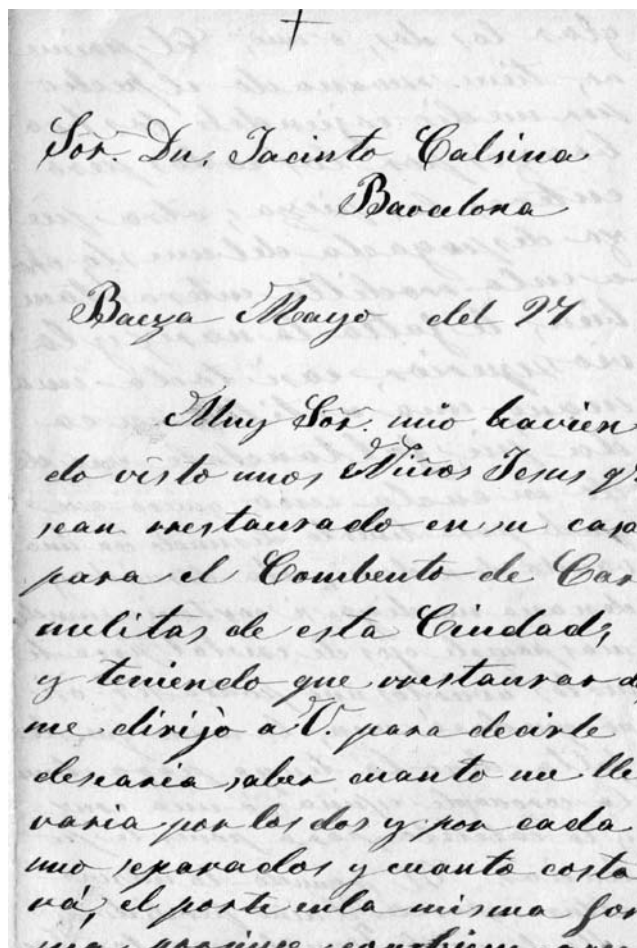 Sor. Dn. Jacinto Calsina
Barcelona
Baeza Mayo del 97
Muy Sor. mio havien
do visto unos Niños Jesus q.
sean rrestaurado en su casa
para el Combento de Car
melitas de esta Ciudad;
y teniendo que rrestaurar
me dirijo a V. para decirle
desearia saber cuanto me lle
varia por los dos y por cada
uno separados y cuanto costa
rá, el porte enla misma for